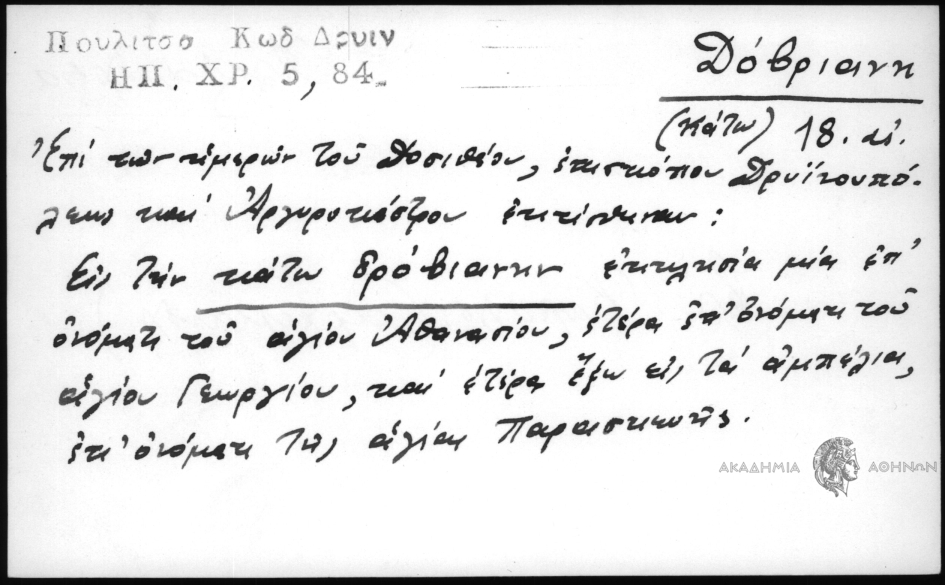 Πουλιτσα Κωδ Δρυιν
ΗΠ. ΧΡ. 5, 84
Δόβριανη
(Κάτω) 18. αἰ.
Ἐπί τῶν ἡμερῶν τοῦ Δοσιθέου, ἐπισκόπου Δρυϊνουπό-
λεως καί Ἀργυροκάστρου ἐκτίσθησαν:
Εἰς τήν κάτω δρόβιανην ἐκκλησία μία ἐπ'
ὀνόματι τοῦ ἁγίου Ἀθανασίου, ἑτέρα ἐπ' ὀνόματι τοῦ
ἁγίου Γεωργίου, καί ἑτέρα ἔξω εἰς τά ἀμπέλια,
ἐπ' ὀνόματι τῆς ἁγίας Παρασκευῆς.
ΑΚΑΔΗΜΙΑ ΑΘΗΝΩΝ